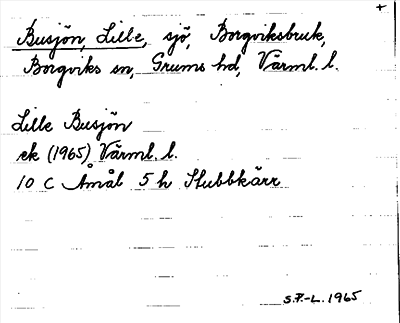 +
Busjön, Lille, sjö, Borgviksbruk,
Borgviks sn, Grums hd, Värml. l.
Lille Busjön
ek (1965) Värml. l.
10 C Åmål 5 h Stubbkärr
S.F.-L. 1965